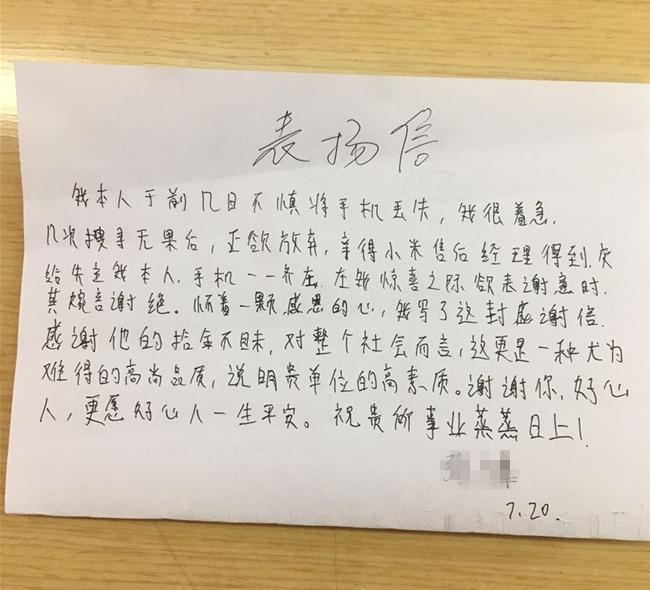 表扬信
我本人于前几日不慎将手机丢失，我很着急.
几次搜寻无果后，正欲放弃，幸得小米售后经理得到.欠
给失主我本人.手机一一齐在.在我惊喜之际欲表谢意时.
其婉言谢绝。怀着一颗感恩的心，我写了这封感谢信.
感谢他的拾金不昧，对整个社会而言，这更是一种尤为
难得的高尚品质，说明贵单位的高素质。谢谢你，好心
人，更愿好心人一生平安。祝贵所事业蒸蒸日上！
7.20.